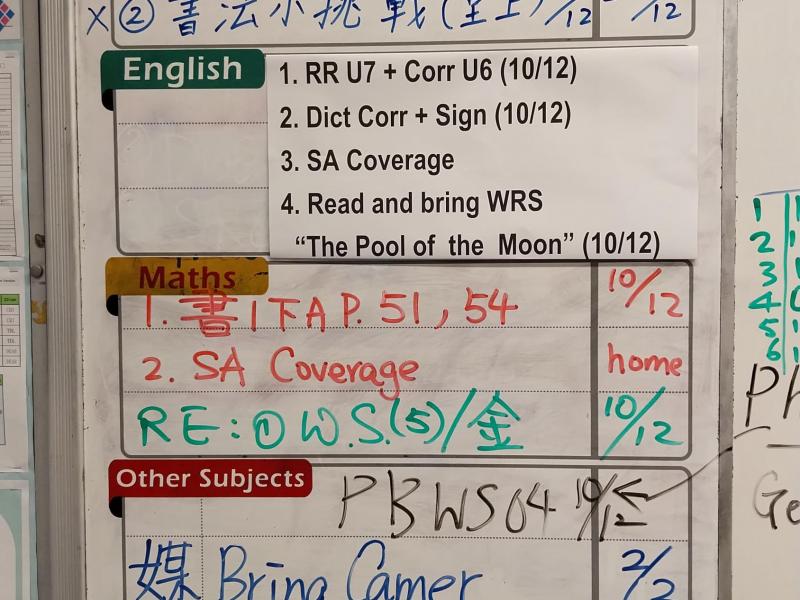 x ② 書法小挑戰(至上) /12 /12
English
1. RR U7 + Corr U6 (10/12)
2. Dict Corr + Sign (10/12)
3. SA Coverage
4. Read and bring WRS
“The Pool of the Moon” (10/12)
Maths
1. 書1下A P. 51, 54 10/12
2. SA Coverage home
RE: ① W.S.(5)/金 10/12
Other Subjects
PBWS04 10/12 ←
媒 Bring Camer 2/2
1
2
3
4
5
6
Ge